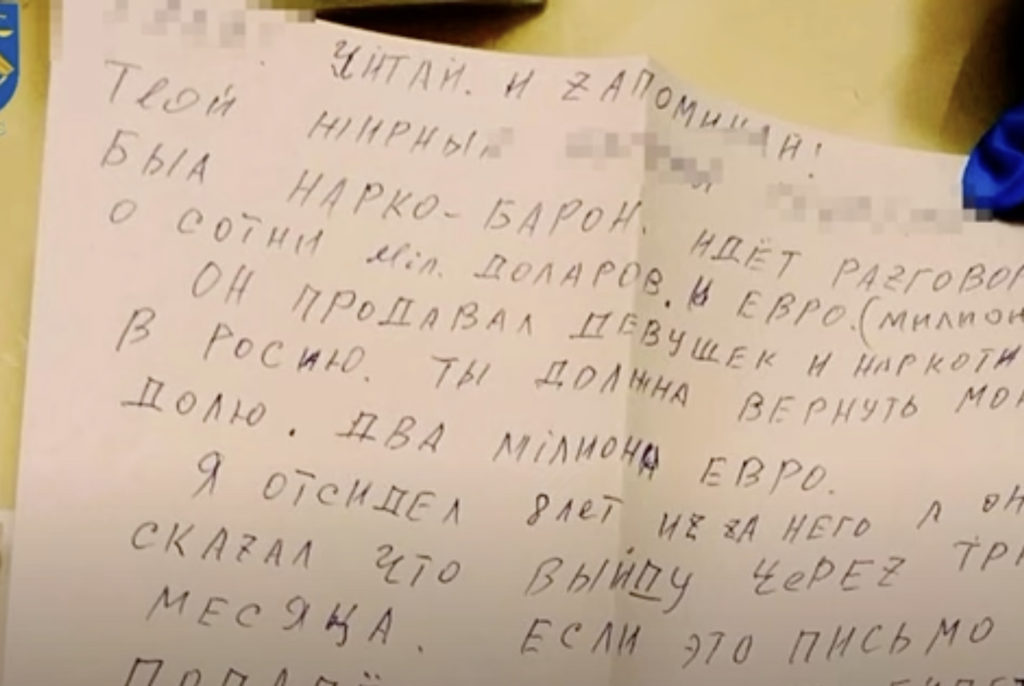 ЧИТАЙ. И ZАПОМИНАЙ!
ТВОЙ ЖИРНЫЙ
БЫЛ НАРКО-БАРОН. ИДЁТ РАZГОВОР
О СОТНИ Міл. ДОЛАРОВ. И ЕВРО. (МИЛИОН
ОН ПРОДАВАЛ ДЕВУШЕК И НАРКОТИ
В РОСИЮ. ТЫ ДОЛЖНА ВЕРНУТЬ МОЮ
ДОЛЮ. ДВА МіЛИОНА ЕВРО.
Я ОТСИДЕЛ 8 ЛЕТ ИZ ZА НЕГО А ОН
СКАZАЛ ЧТО ВЫЙДУ ЧЕРЕZ ТРИ
МЕСЯЦА. ЕСЛИ ЭТО ПИСЬМО